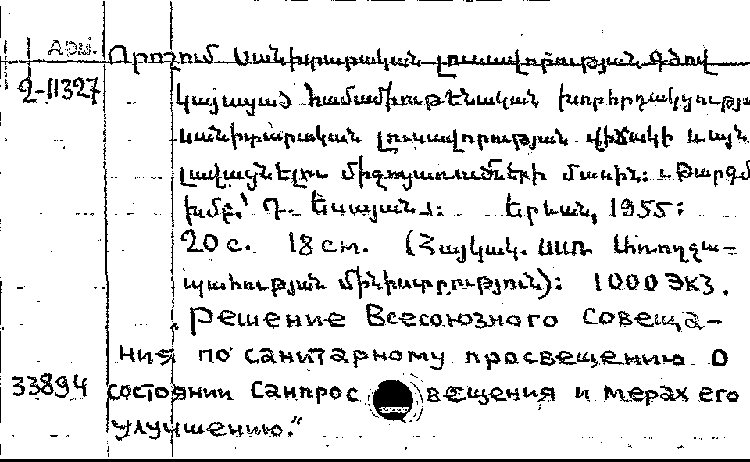 Арм.
2-11327
Որոշում Սանիտարական լուսավորության գծով
կայացած համամիութենական խորհրդակցությա
սանիտարական լուսավորության վիճակի և այն
լավացնելու միջոցառումների մասին: Թարգմ
խմբ.՝ Դ. Եսայան: Երևան, 1955:
20 с. 18 см. (Հայկակ. ՍՍՌ Առողջա-
պահության մինիստրություն): 1000 экз.
Решение Всесоюзного совеща-
ния по санитарному просвещению о
33894 состоянии санпросвещения и мерах его
улучшению."